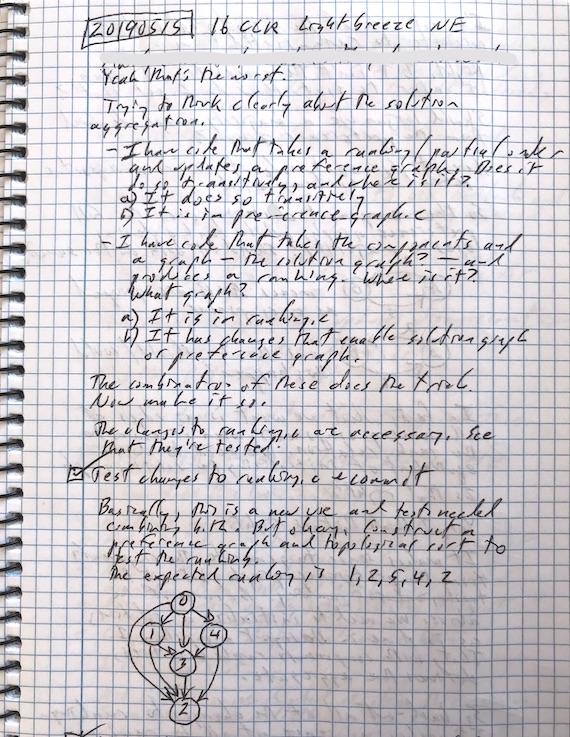 20190515 16 CLR Light breeze NE
Yeah that's the worst.
Trying to think clearly about the solution
aggregation.
- I have code that takes a ranking/partial order
and updates a preference graph. Does it
do so transitively, and where is it?
a) It does so transitively
b) It is in preference graph.c
- I have code that takes the components and
a graph — the solution graph? — and
produces a ranking. Where is it?
What graph?
a) It is in ranking.c
b) It has changes that enable solution graph
or preference graph.
The combination of these does the trick.
Now make it so.
The changes to ranking.c are necessary. See
that they're tested.
Test changes to ranking.c + commit
Basically, this is a new use and tests needed
combining both. But okay. Construct a
preference graph and topological sort to
test the ranking.
The expected ranking is 1, 2, 5, 4, 2
0
1 4
3
2